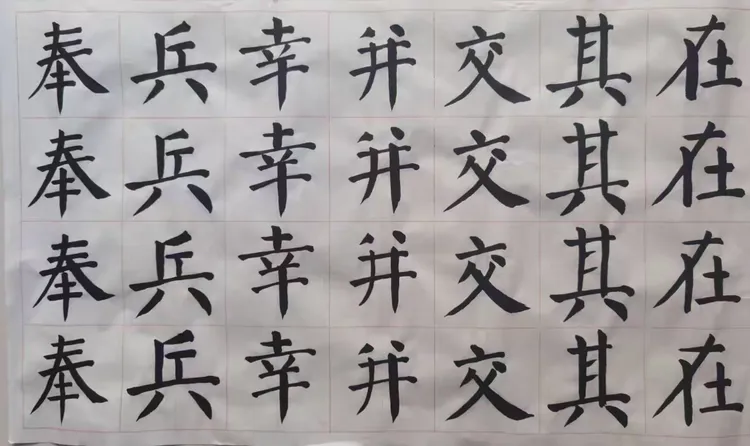 奉兵幸并交其在
奉兵幸并交其在
奉兵幸并交其在
奉兵幸并交其在